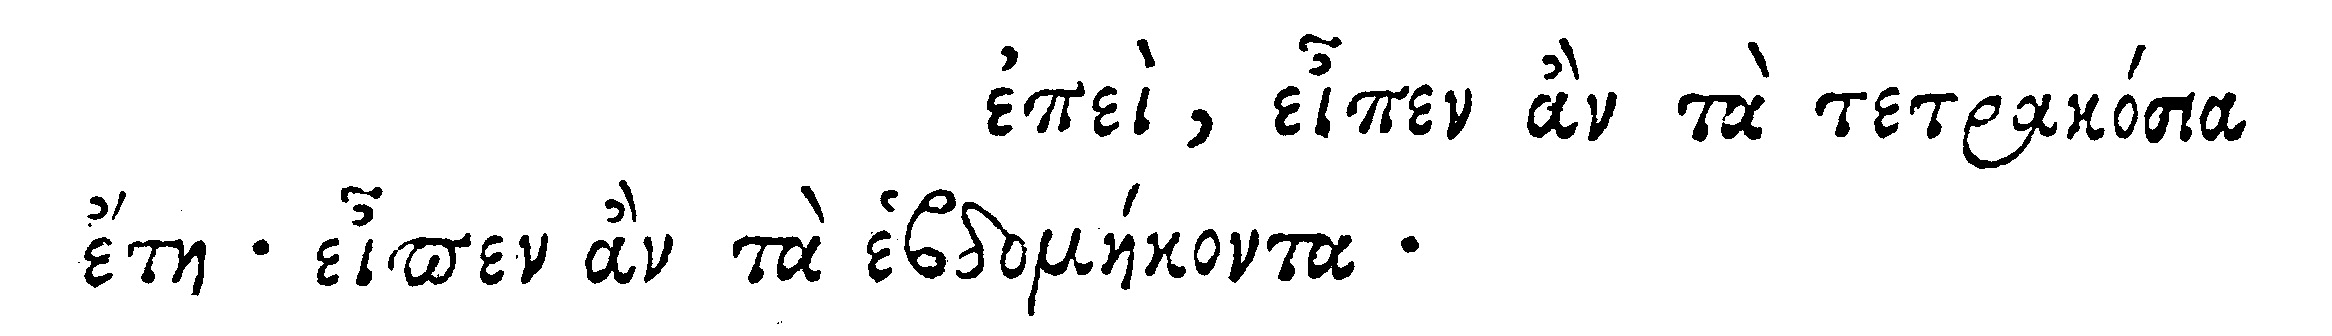 ἐπεὶ, εἶπεν ἂν τὰ τετρακόσια
ἔτη · εἶπεν ἂν τὰ ἑβδομήκοντα ·